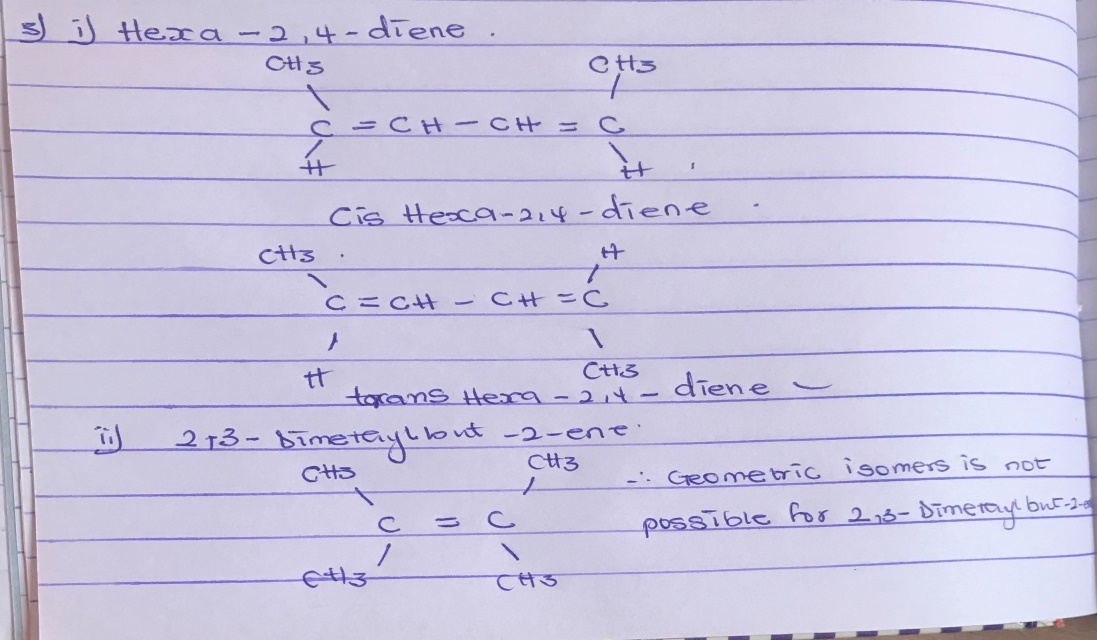 3) i) Hexa-2,4-diene.
CH3 CH3
C = CH - CH = C
H H
Cis Hexa-2,4-diene
CH3 H
C = CH - CH = C
H CH3
trans Hexa-2,4-diene
ii) 2,3-Dimethylbut-2-ene.
CH3 CH3 ∴ Geometric isomers is not
C = C possible for 2,3-Dimethylbut-2-
CH3 CH3